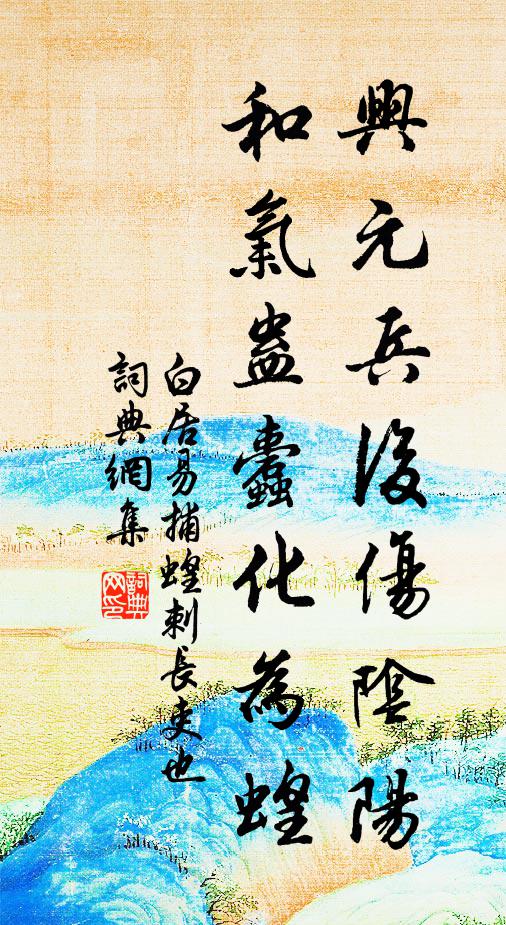 興元兵後傷陰陽
和氣蠱蠹化為蝗
白居易捕蝗刺長吏也
詞典網集
詞典网印